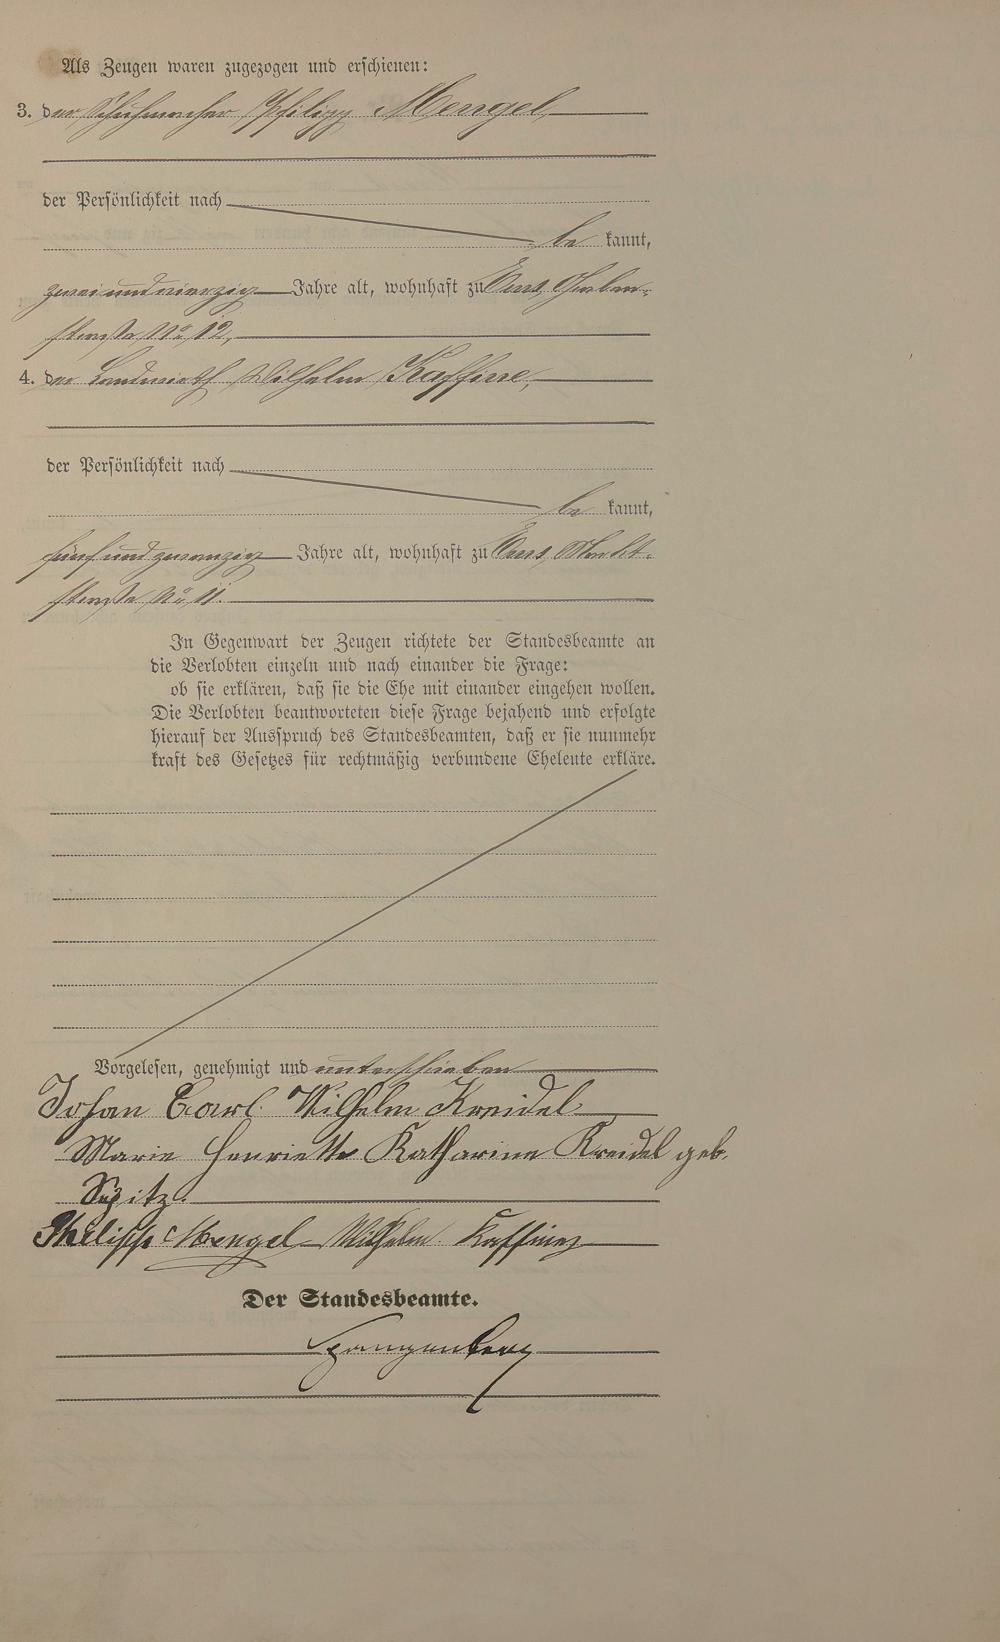 Als Zeugen waren zugezogen und erschienen:
3. der Schuhmacher Philipp Mengel,
der Persönlichkeit nach
be kannt,
zweiundvierzig Jahre alt, wohnhaft zu
straße No 12,
4. der Landwirth Wilhelm Kaffine,
der Persönlichkeit nach
be kannt,
fünfundzwanzig Jahre alt, wohnhaft zu
straße No 11.
In Gegenwart der Zeugen richtete der Standesbeamte an
die Verlobten einzeln und nach einander die Frage:
ob sie erklären, daß sie die Ehe mit einander eingehen wollen.
Die Verlobten beantworteten diese Frage bejahend und erfolgte
hierauf der Ausspruch des Standesbeamten, daß er sie nunmehr
kraft des Gesetzes für rechtmäßig verbundene Eheleute erkläre.
Vorgelesen, genehmigt und unterschrieben
Johan Carl Wilhelm Kreidel
Marie Henriette Katharine Kreidel geb.
Philipp Mengel Wilhelm
Der Standesbeamte.
Spangenberg